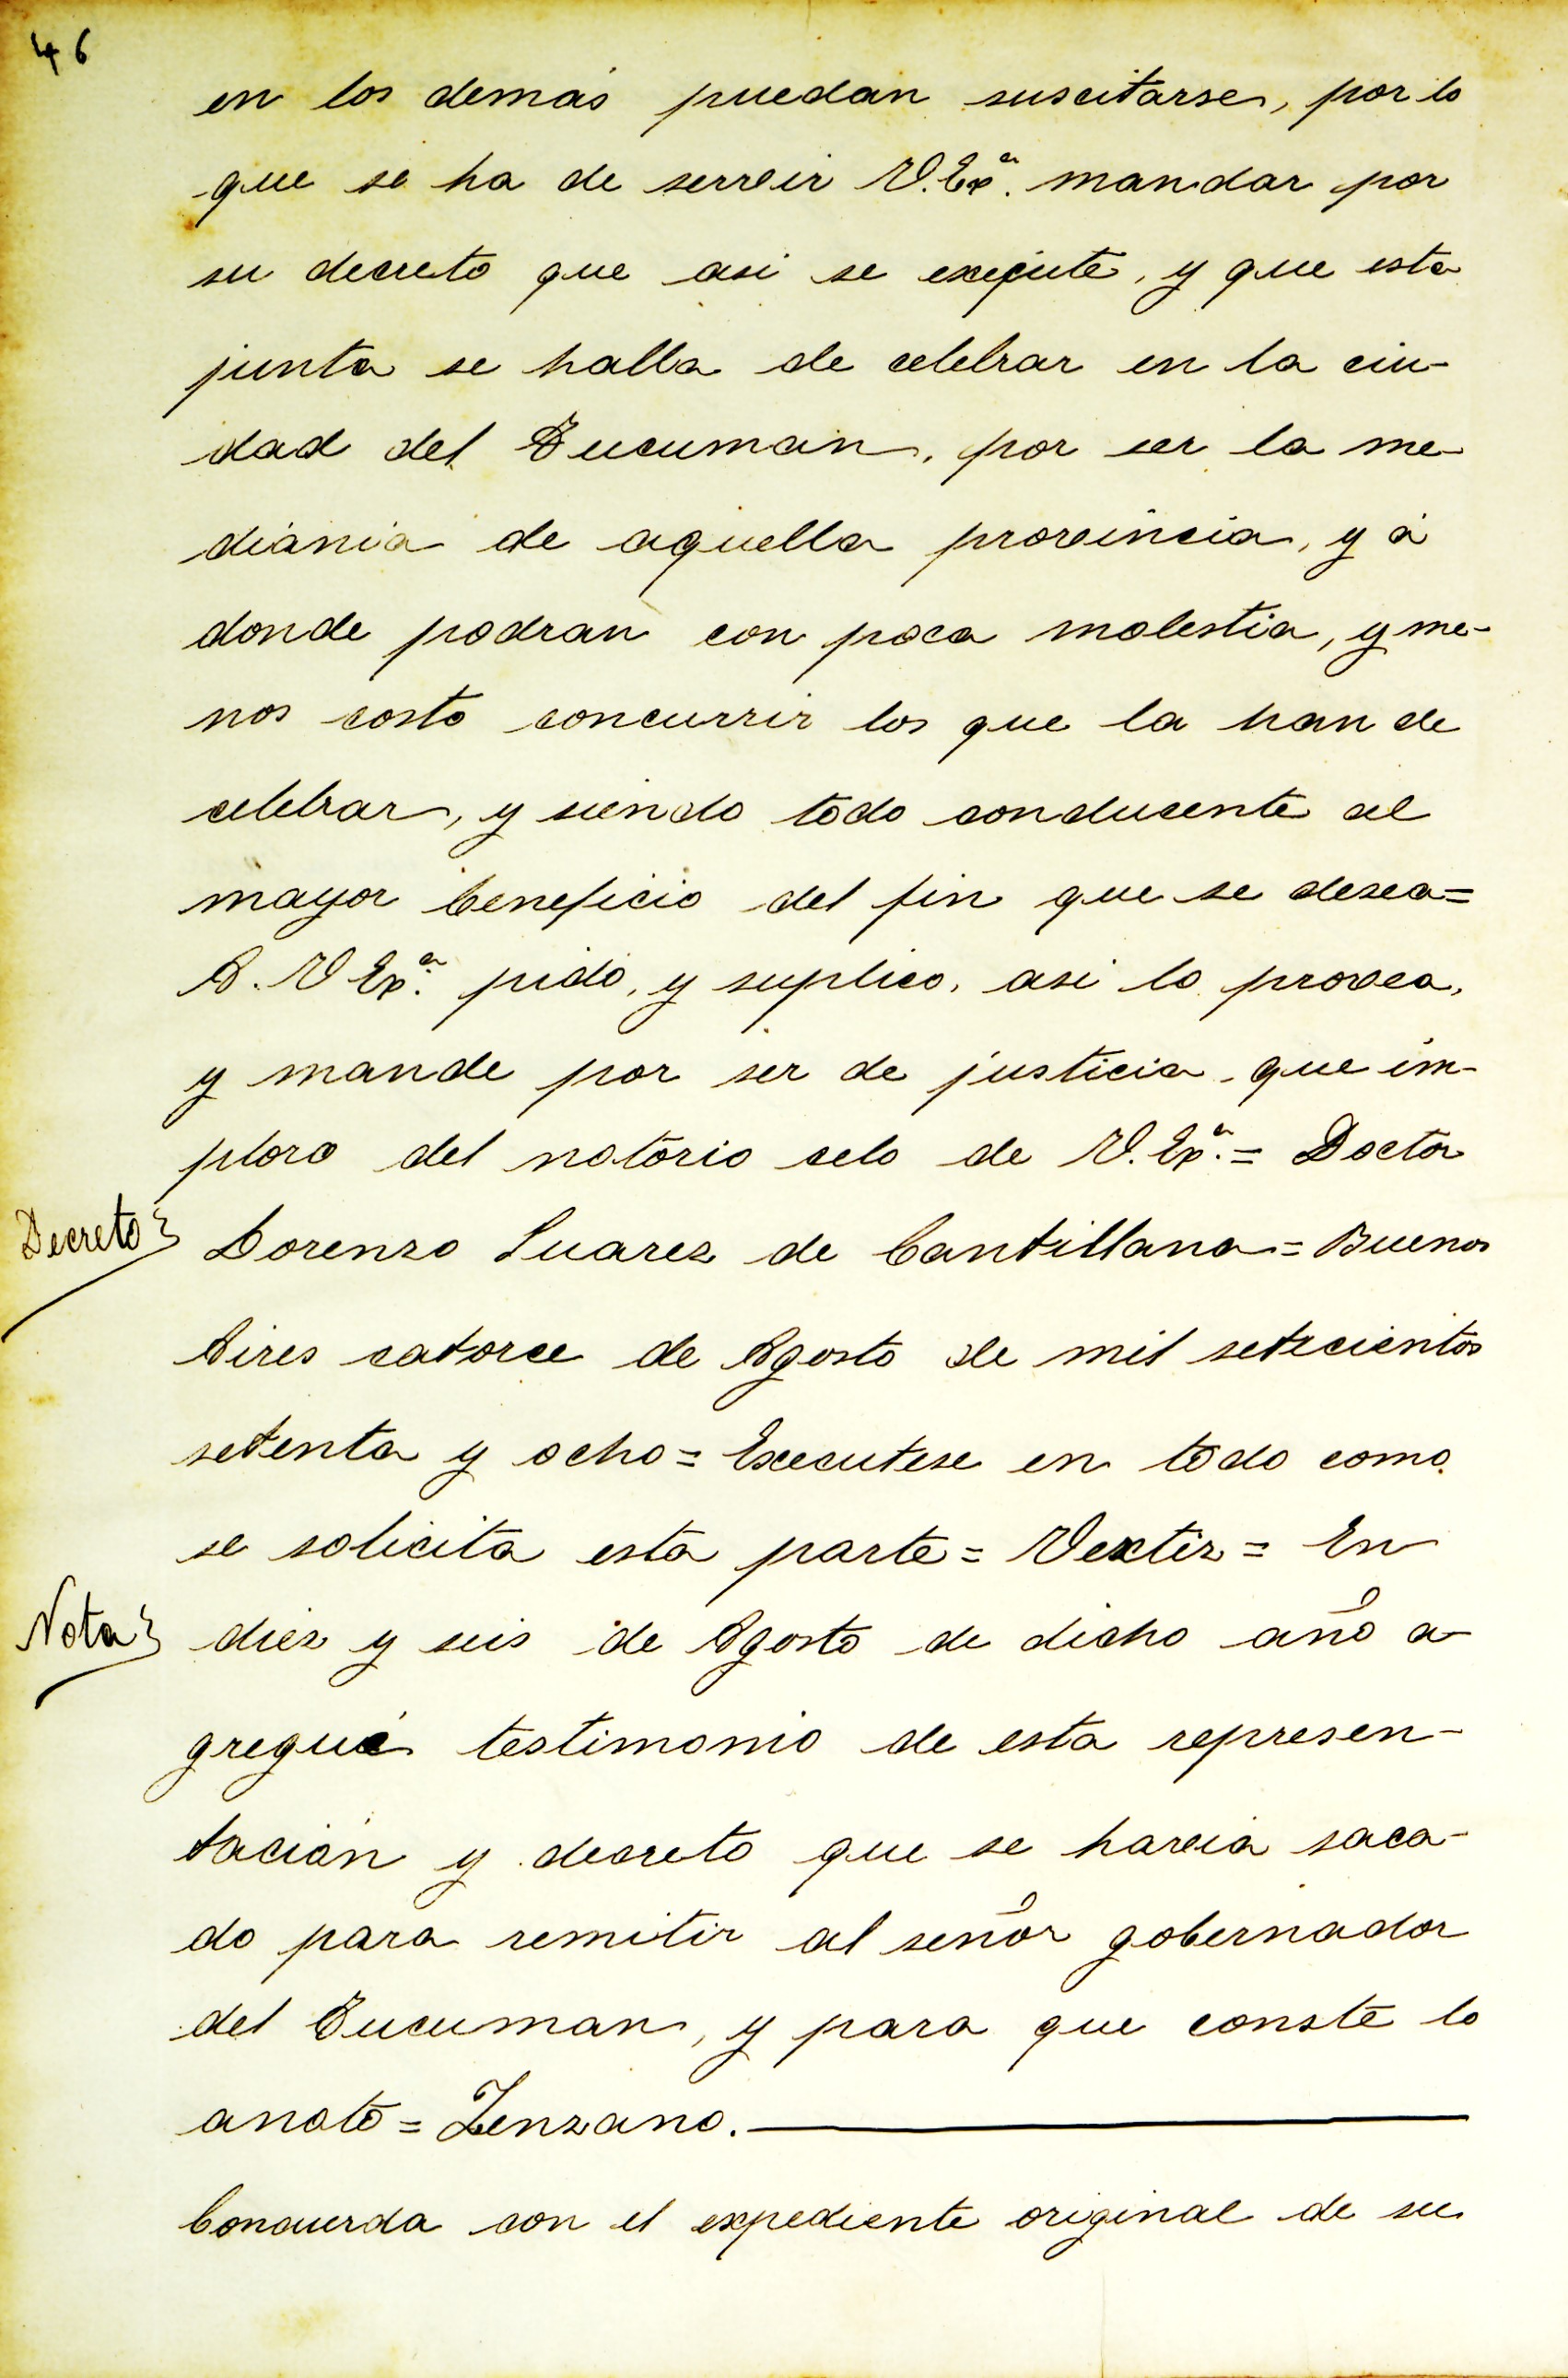 46
en los demás puedan suscitarse, por lo
que se ha de servir V.Ex.ª mandar por
su decreto que asi se execute, y que esta
junta se halla de celebrar en la ciu-
dad del Tucuman, por ser la me-
diania de aquella provincia, y á
donde podran con poca molestia, y me-
nos costo concurrir los que la han de
celebrar, y siendo todo conducente al
mayor beneficio del fin que se desea=
A. V Ex.ª pido, y suplico, asi lo provea,
y mande por ser de justicia que im-
ploro del notorio celo de V. Ex.ª = Doctor
Decreto
Lorenzo Suarez de Cantillana = Buenos
Aires catorce de Agosto de mil setecientos
setenta y ocho = Executese en todo como
se solicita esta parte = Vertiz = En
Nota
diez y seis de Agosto de dicho año a
gregué testimonio de esta represen-
tación y decreto que se havia saca-
do para remitir al señor gobernador
del Tucuman, y para que conste lo
anoto = Zenzano.
Concuerda con el expediente original de su